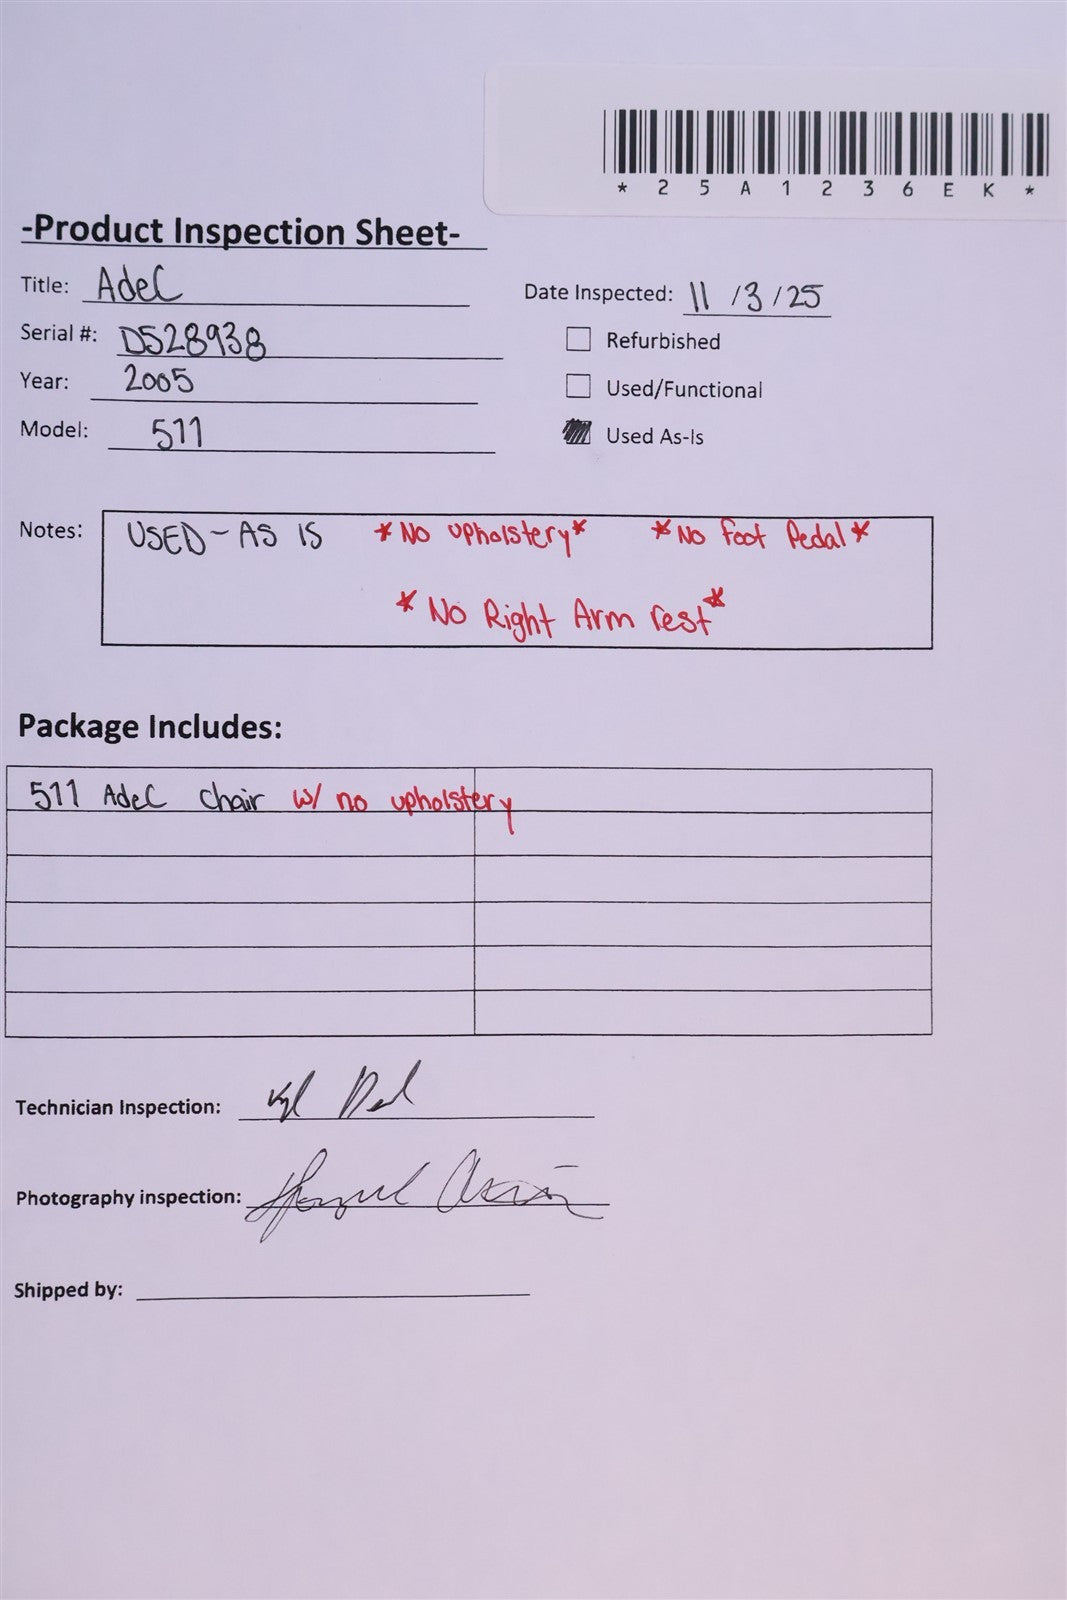 *25A1236EK*
-Product Inspection Sheet-
Title: AdeC
Date Inspected: 11/3/25
Serial #: D528938
Refurbished
Year: 2005
Used/Functional
Model: 511
Used As-Is
Notes: USED-AS IS *No upholstery* *No foot Pedal*
*No Right Arm rest*
Package Includes:
511 AdeC chair w/ no upholstery
Technician Inspection:
Photography inspection:
Shipped by: